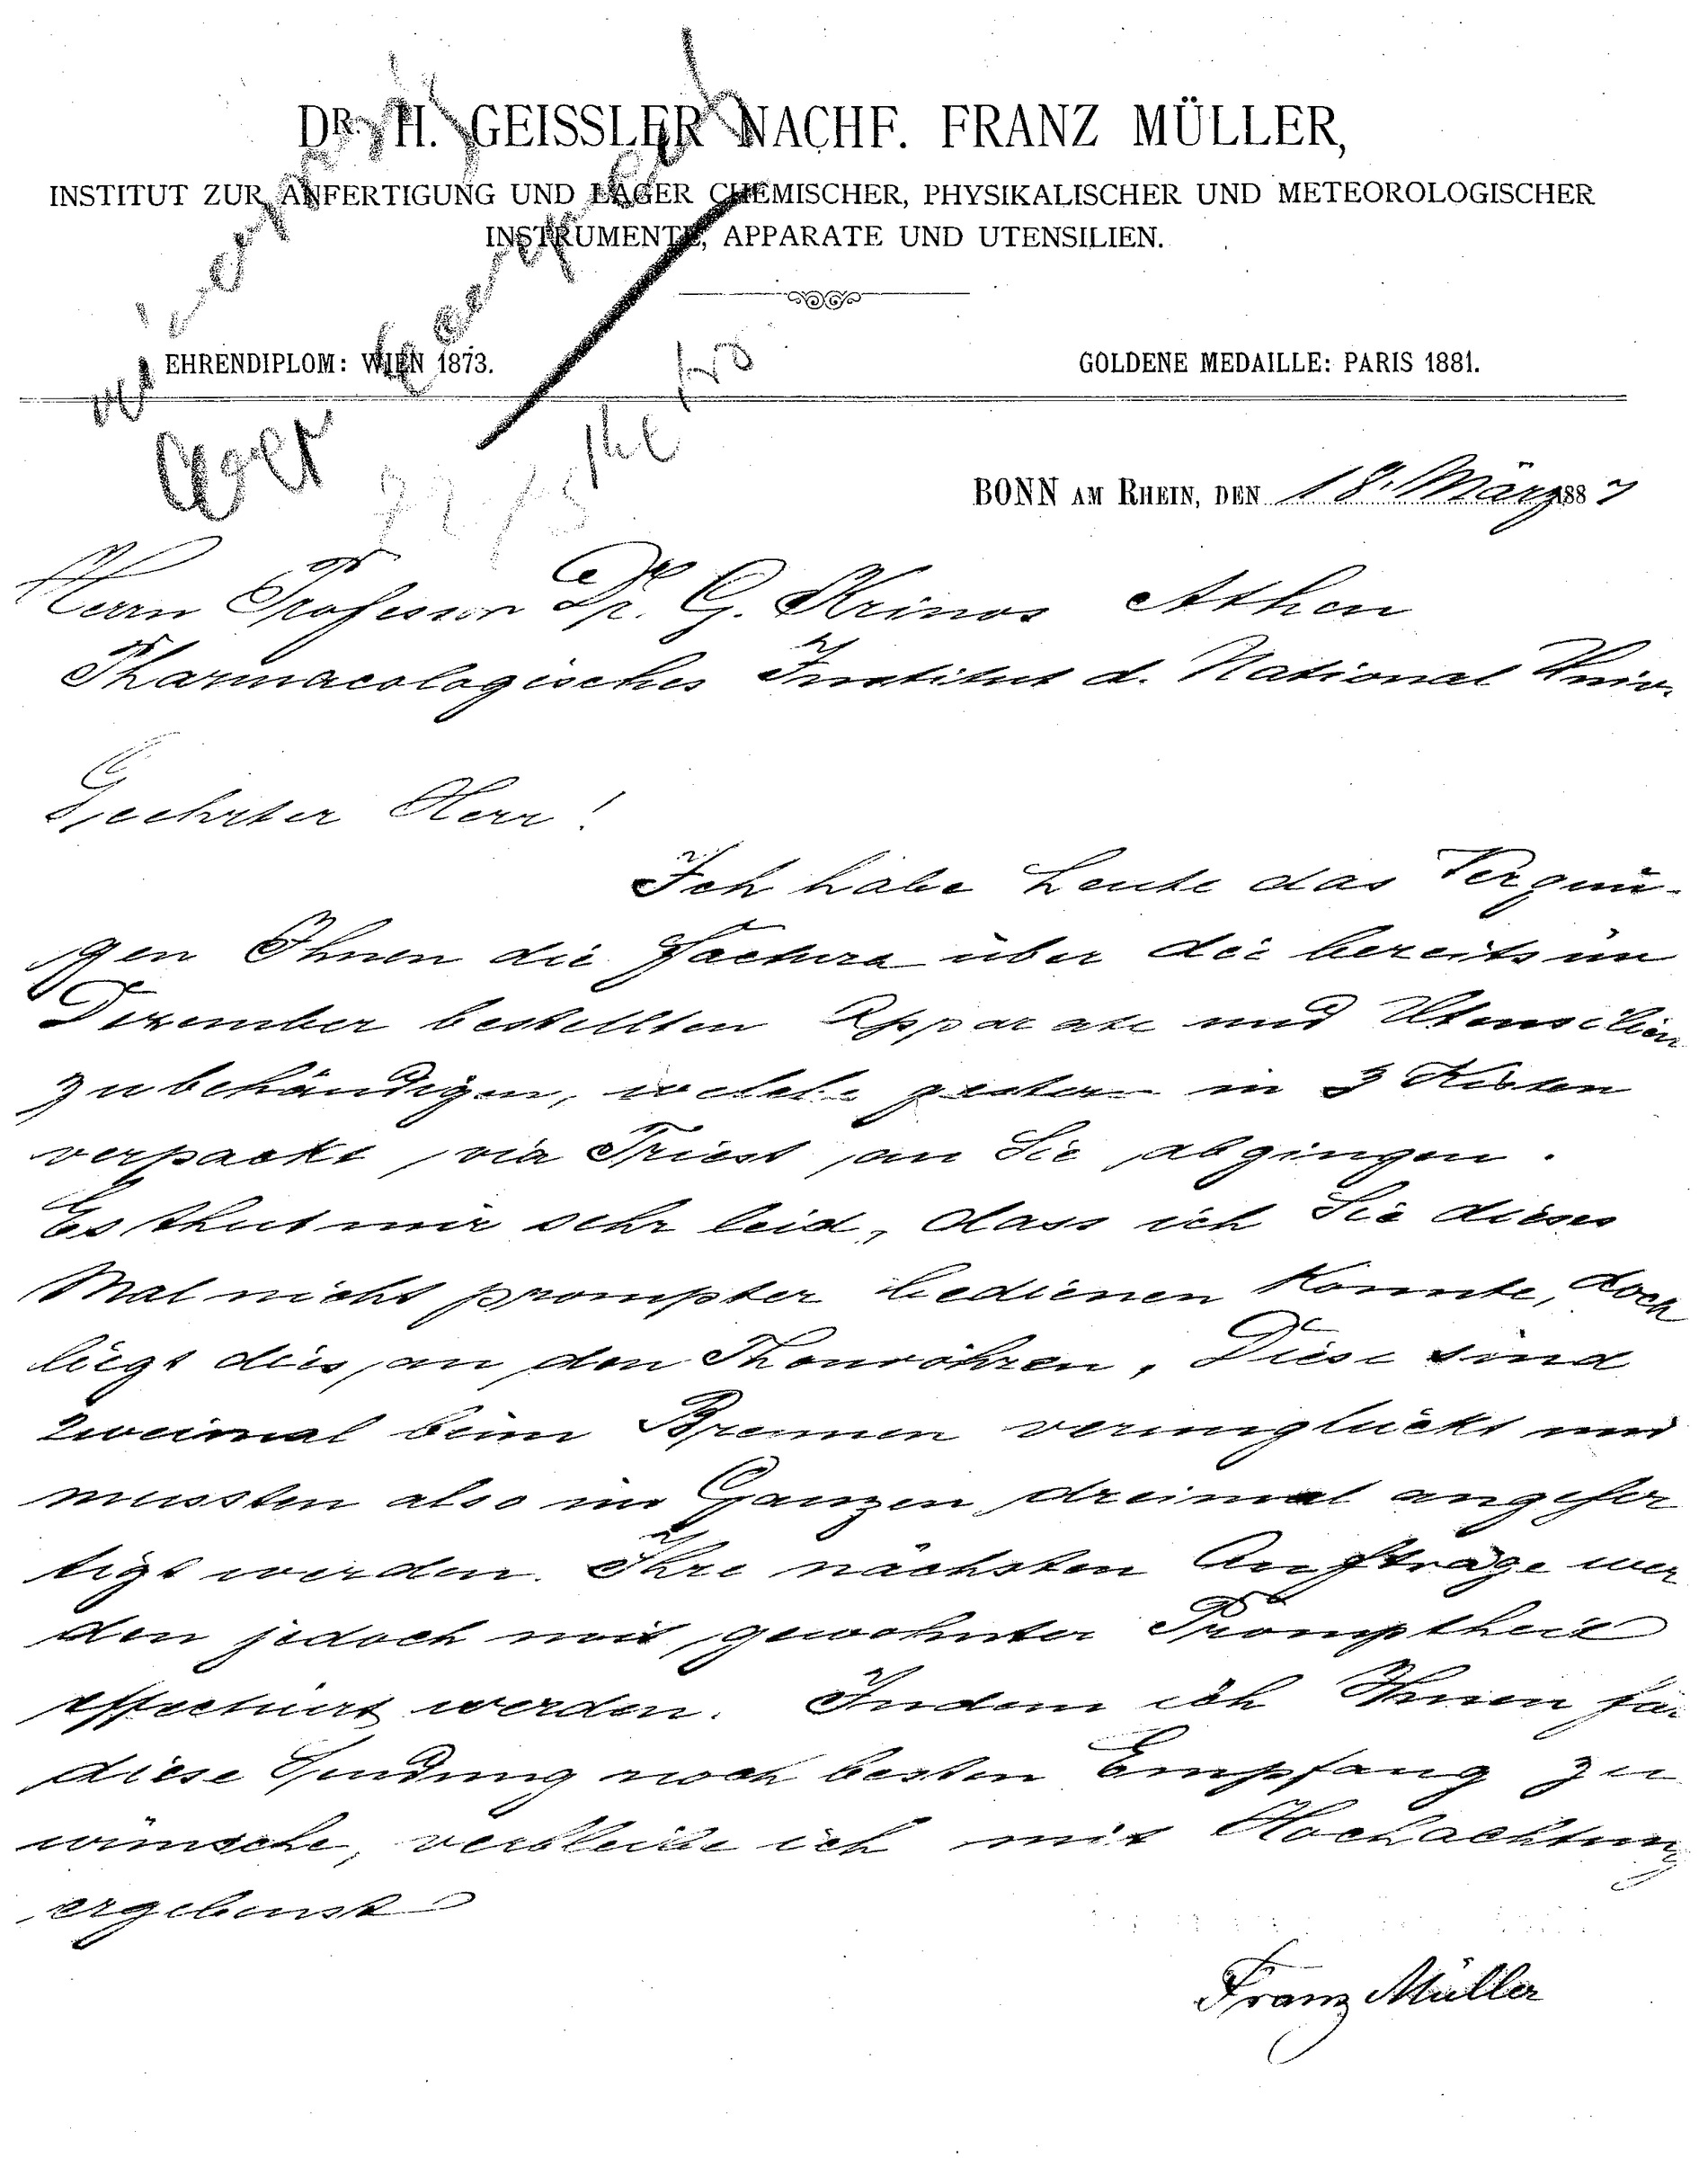 DR. H. GEISSLER NACHF. FRANZ MÜLLER,
INSTITUT ZUR ANFERTIGUNG UND LAGER CHEMISCHER, PHYSIKALISCHER UND METEOROLOGISCHER
INSTRUMENTE, APPARATE UND UTENSILIEN.
EHRENDIPLOM: WIEN 1873.
GOLDENE MEDAILLE: PARIS 1881.
BONN AM RHEIN, DEN 18. März 1887
Herrn Professor Dr. G. Krinos Athen
Pharmacologisches Institut d. National Univ.
Geehrter Herr!
Ich habe heute das Vergnü-
gen Ihnen die Factura über die bereits im
Dezember bestellten Apparate und Utensilien
zu behändigen, welche gestern in 3 Kisten
verpackt, via Triest an Sie abgingen.
Es thut mir sehr leid, dass ich Sie dieses
Mal nicht prompter bedienen konnte, doch
liegt dies an den Thonröhren. Diese sind
zweimal beim Brennen verunglückt und
mussten also im Ganzen dreimal angefer
tigt werden. Ihre nächsten Aufträge wer
den jedoch mit gewohnter Promptheit
effectuirt werden. Indem ich Ihnen für
diese Sendung noch besten Empfang zu
wünsche, verbleibe ich mit Hochachtung
ergebenst
Franz Müller